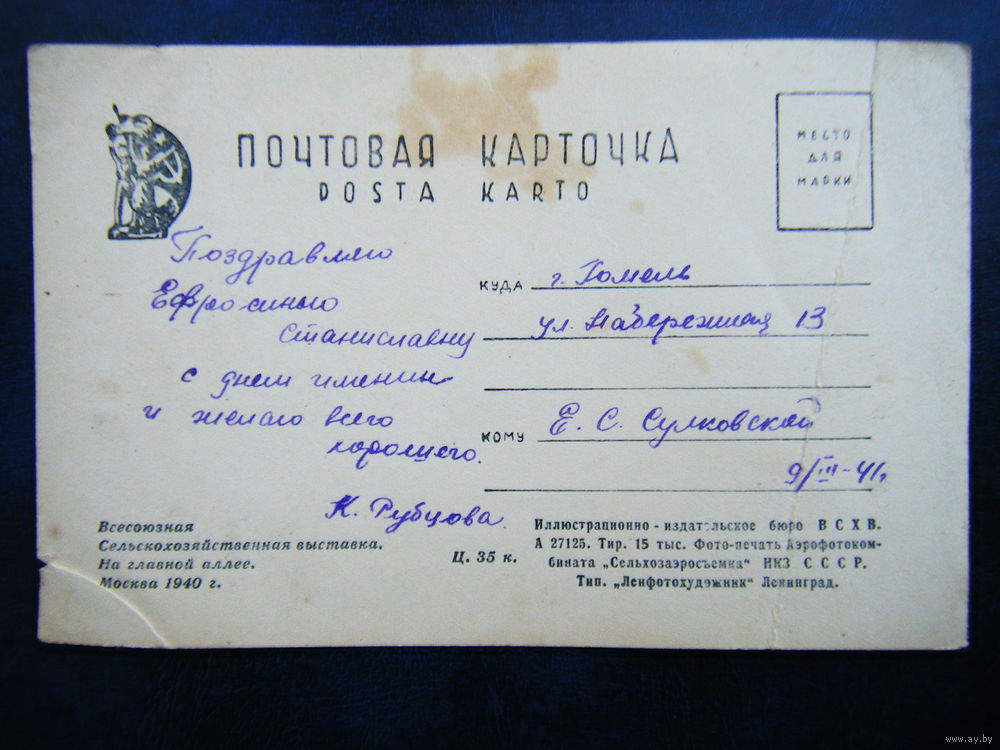 ПОЧТОВАЯ КАРТОЧКА
POSTA KARTO
МЕСТО
ДЛЯ
МАРКИ
Поздравляю
Ефросинью
Станиславну
с днем именин
и желаю всего
хорошего.
К. Рубцова.
КУДА г. Гомель
ул. Набережная 13
КОМУ Е. С. Сулковской
9/III-41г.
Всесоюзная
Сельскохозяйственная выставка.
На главной аллее.
Москва 1940 г.
Ц. 35 к.
Иллюстрационно-издательское бюро ВСХВ.
А 27125. Тир. 15 тыс. Фото-печать Аэрофотоком-
бината „Сельхозаэросъемка" НКЗ СССР.
Тип. „Ленфотохудожник" Ленинград.
www.ay.by